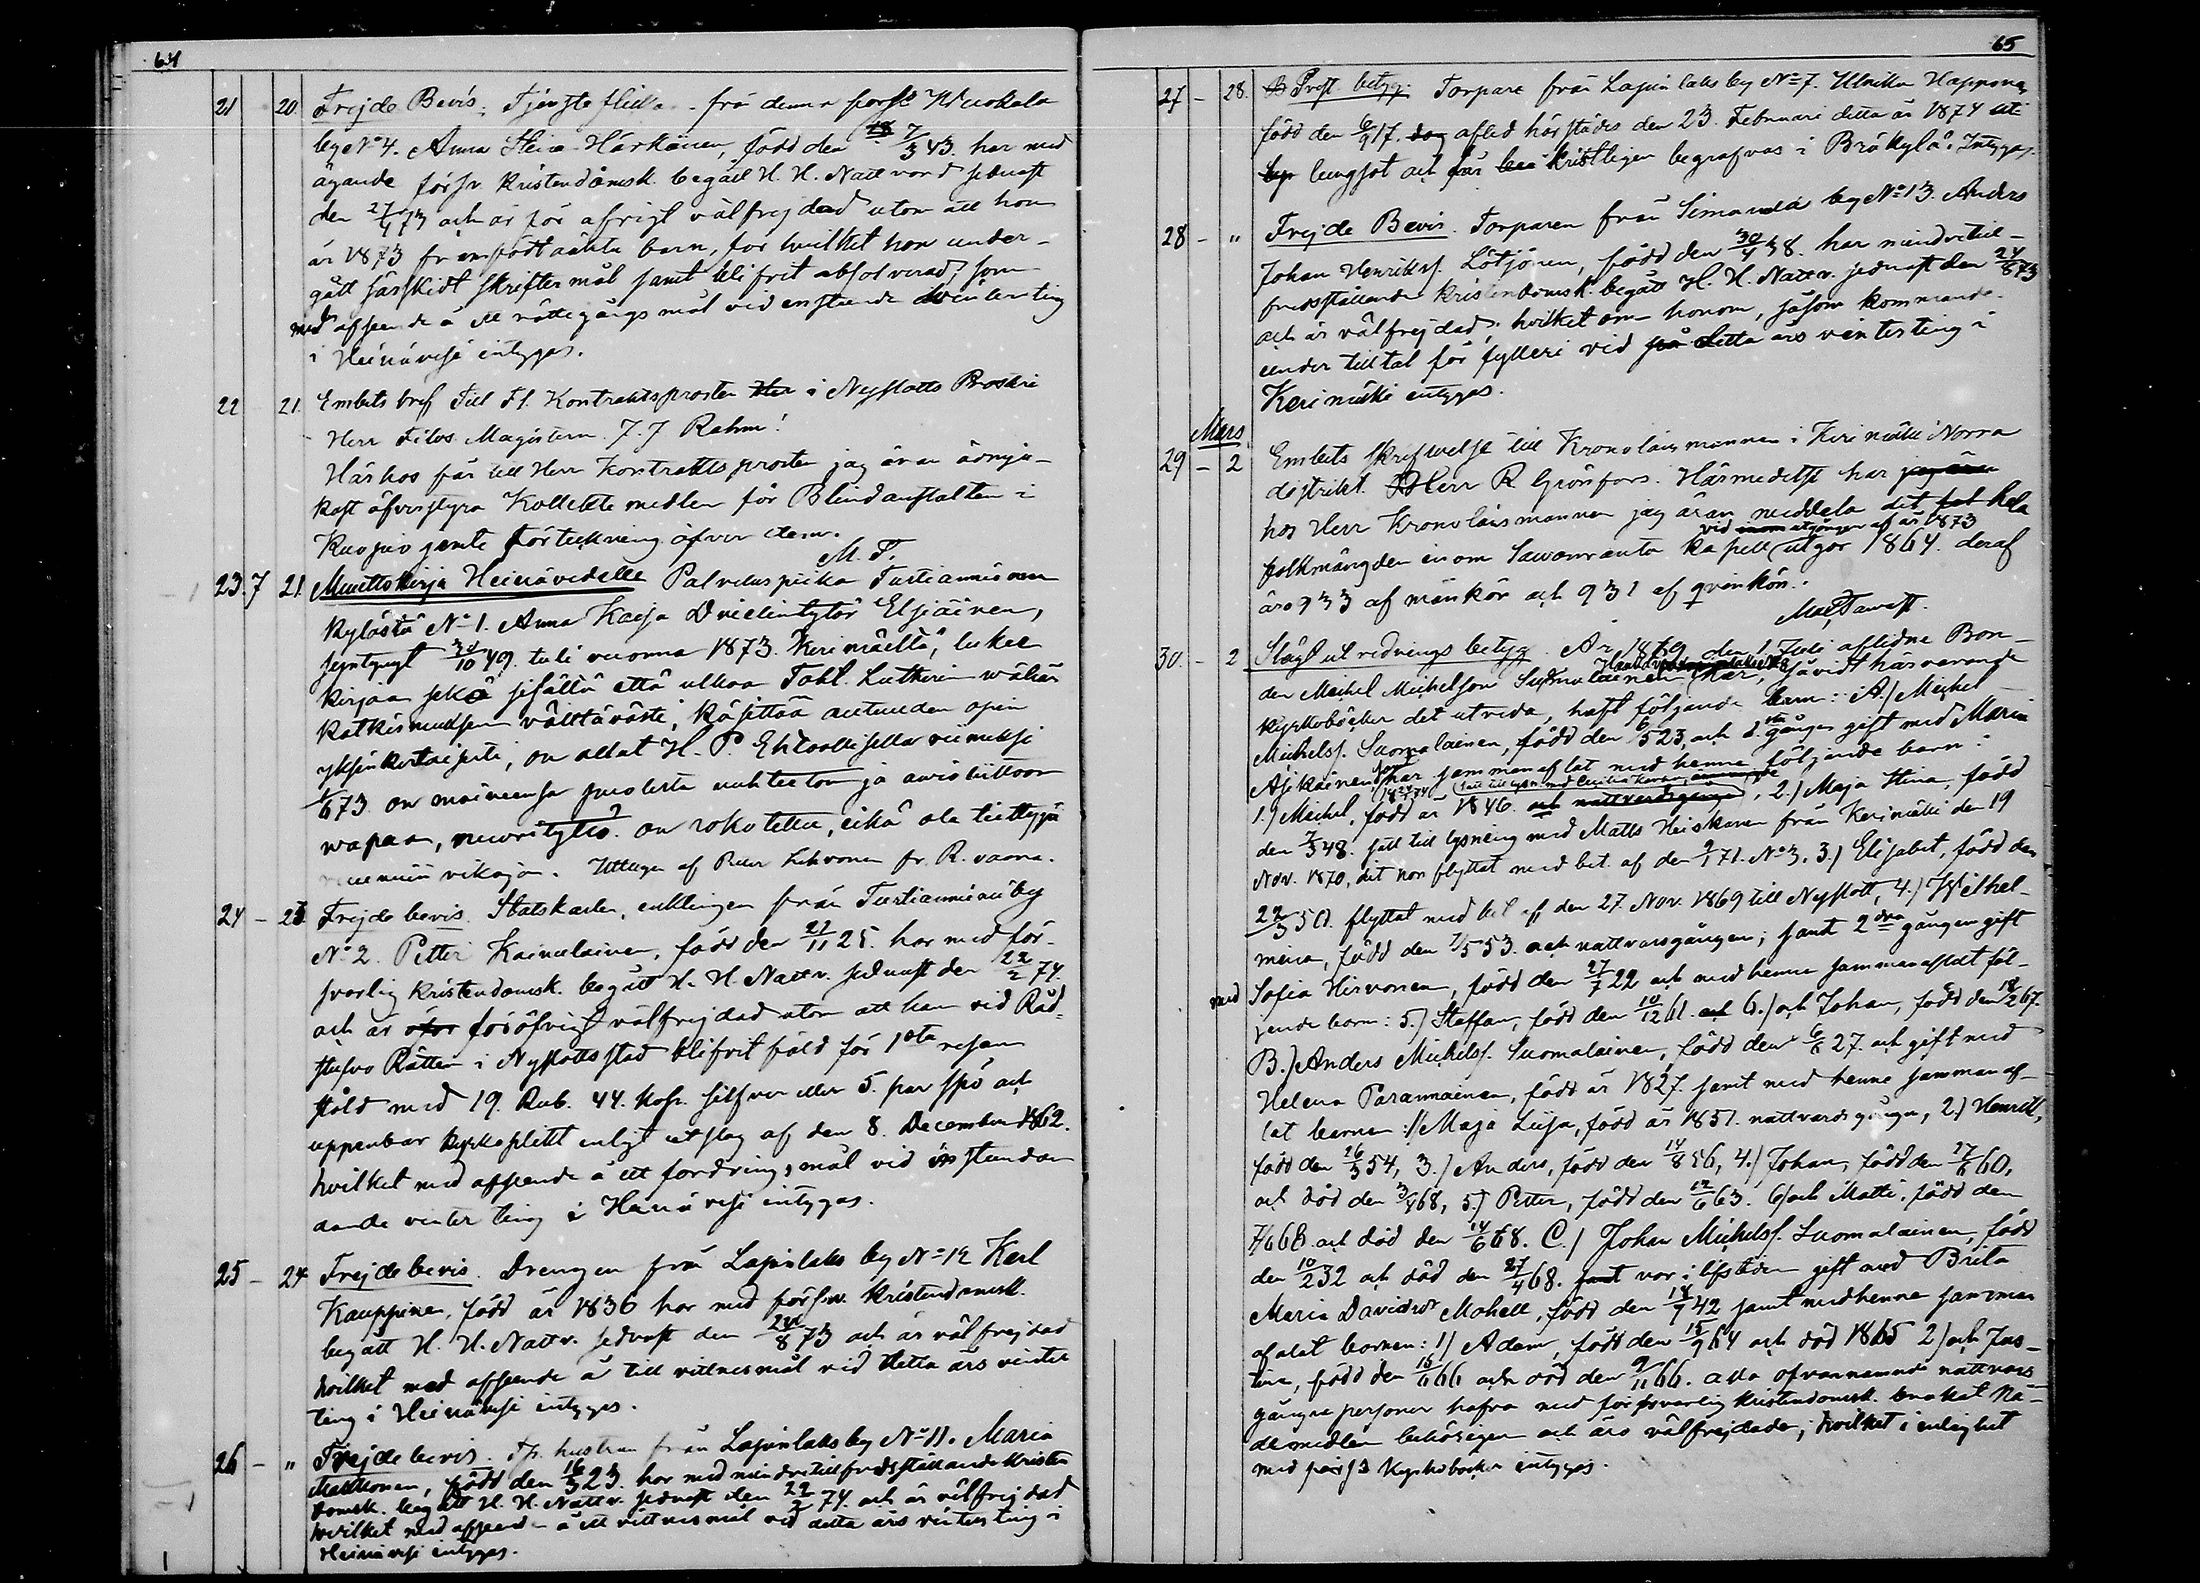 64
21 20. Frejde Bevis. Tjensteflickan från denna sock.
by No 4. Anna Stina Härkönen, född den 7/3 43. har med
ägande försv. kristendomsk. begått H. H. Nattvard sednast
den 27/4 73 och är för öfrigt välfrejdad utom att hon
år 1873 framfödt oäkta barn, för hvilket hon under-
gått särskidt skriftermål samt blifvit absolverad; som
med afseende å ett rättegångs mål vid enstående vinterting
i Heinävesi intygas.
22 21. Embets bref Till Hl. Kontraktsprosten i Nyslotts Prosteri
Herr Filos. Magistern. J. J Rahm!
Härhos får till Herr Kontraktsprosten jag äran ödmju-
kast öfverstyra Kollektmedlen för Blindanstalten i
Kuopio jemte förteckning öfver dem.
M. T.
23. 7 21. Muuttokirja Heinävedelle Palveluspiika Tuetianniemen
kylästä No 1. Anna Kaisa Eljäinen,
syntynyt 30/10 49. tuli vuonna 1873. Kerimäeltä, lukee
kirjaa sekä sisältä että ulkoa Toht. Lutherin vähän
katkismuksen välttävästi, käsittää autuuden opin
yksinkertaisesti, on ollut H. P. Ehtoollisella viimeksi
1/6 73 on maineensa puolesta nuhteeton ja avioliittoon
vapaa, on rokotettu, eikä ole tiettyjä
vikoja. Uttagen af Petter Lehvonen fr. R. vaara.
24 - 23 Frejde bevis. Statskarlen, enklingen från Tuetianniemi by
No 2. Petter Kainulainen, född den 21/11 25. har med för-
svarlig kristendomsk. begått H. H. Nattv. sednast den 22/2 74.
och är för öfrigt välfrejdad utom att han vid Råd-
stufvo Rätten i Nyslotts stad blifvit fäld för 1sta resan
stöld med 19. Rub. 44. kop. silfver eller 5. par spö och
uppenbar kyrkoplikt enligt utslag af den 8. December 1862.
hvilket med afseende å ett fordrings mål vid instundan
dande vinter ting i Heinävesi intygas.
25 - 24 Frejde bevis. Drengen från Lapinlaks by No 12 Karl
Kauppinen, född år 1836 har med försv. kristendomsk.
begått H. H. Nattv. sednast den 24/8 73 och är välfrejdad
hvilket med afseende å till vittnesmål vid detta års vinter
ting i Heinävesi intygas.
26 - " Frejde bevis. Tp. hustrun från Lapinlaks by No 11. Maria
Makkonen, född den 16/3 23. har med mindre tillfredsställande kristen
domsk. begått H. H. Nattv. sednast den 22/2 74. och är välfrejdad
hvilket med afseende å ett vittnesmål vid detta års vinterting i
Heinävesi intygas.
65
27 - 28. Prest betyg. Torpare från Lapinlaks by No 7. Ulrika Happonen
född den 6/9 17. afled härstädes den 23. Februari detta år 1874 uti
lungsot och kristligen begrafvas i Bräkylä. Intygas.
28 - " Frejde Bevis. Torparen från Simanala by No 13. Anders
Johan Henrikss. Lötjönen, född den 30/4 38. har mindre till-
fredsställande kristendomsk. begått H. H. Nattv. sednast den 24/8 73
och är välfrejdad; hvilket om honom, såsom kommande
under tilltal för fylleri vid detta års vinterting i
Kerimäki intygas.
Mars
29 - 2 Embets skrifvelse till Kronolänsmannen i Kerimäki Norra
distrikt. Herr R Grönfors. Härmedelst har
hos Herr Kronolänsmannen jag äran meddela det hela
vid utgången af år 1873
folkmängden inom Savonranta kapell utgör 1864. deraf
äro 933 af mankön och 931 af qvinkön.
M. Tawast.
30. - 2 Slägt utrednings betyg. År 1869 den 1. Juli aflidne Bon-
den Michel Michelson Suomalainen har, såvidt härvarande
kyrkoböcker det utreda, haft följande barn: A.) Michel
Michelss. Suomalainen, född den 6/5 23, och 1. gången gift med Maria
Asikainen har samman aflat med henne följande barn:
1.) Michel, född år 1846. 2.) Maja Stina, född
den 7/3 48. satt till lysning med Matts Heiskanen från Kerimäki den 19
Nov. 1870, dit hon flyttat med bet. af den 9/1 71. No 3, 3.) Elisabet, född den
22/3 50. flyttat med bet. af den 27 Nov. 1869 till Nyslott, 4.) Wilhel-
mina, född den 7/5 53. och nattvardsgången; samt 2dra gången gift
med Sofia Hirvonen, född den 27/7 22 och med henne sammanaflat föl-
jande barn: 5.) Staffan, född den 10/12 61. 6.) och Johan, född den 18/2 67.
B.) Anders Michelss. Suomalainen, född den 6/8 27. och gift med
Helena Parannainen, född år 1827. samt med henne samman af-
lat barnen: 1.) Maja Lisa, född år 1851. nattvardsgången, 2.) Henrik,
född den 26/3 54, 3.) Anders, född den 14/8 56, 4.) Johan, född den 17/6 60,
och död den 3/4 68, 5.) Petter, född den 12/6 63. 6) och Matti, född den
7/6 68 och död den 14/6 68. C.) Johan Michelss. Suomalainen, född
den 10/2 32 och död den 27/4 68. var i lifstiden gift med Brita
Maria Davidsdr Mohell, född den 18/7 42 samt med henne samman
aflat barnen: 1) Adam, född den 15/9 64 och död 1865 2) och Jus-
tina, född den 15/6 66 och död den 9/11 66. alla ofvannamnde nattvards
gångne personer hafva med försvarlig kristendomsk. brukat Nå-
demedlen behörigen och äro välfrejdade; hvilket i enlighet
med kyrkoböcker intygas.